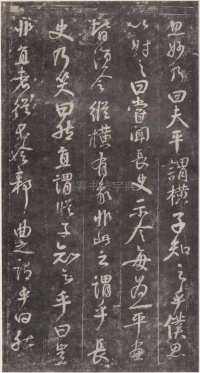 思妙乃曰夫平謂橫子知之乎僕思
以對之曰嘗聞長史示令每為一平畫
皆須令縱橫有象非此之謂乎長
史乃笑曰然直謂縱子知之乎曰豈
非直者縱不令邪曲之謂乎曰然